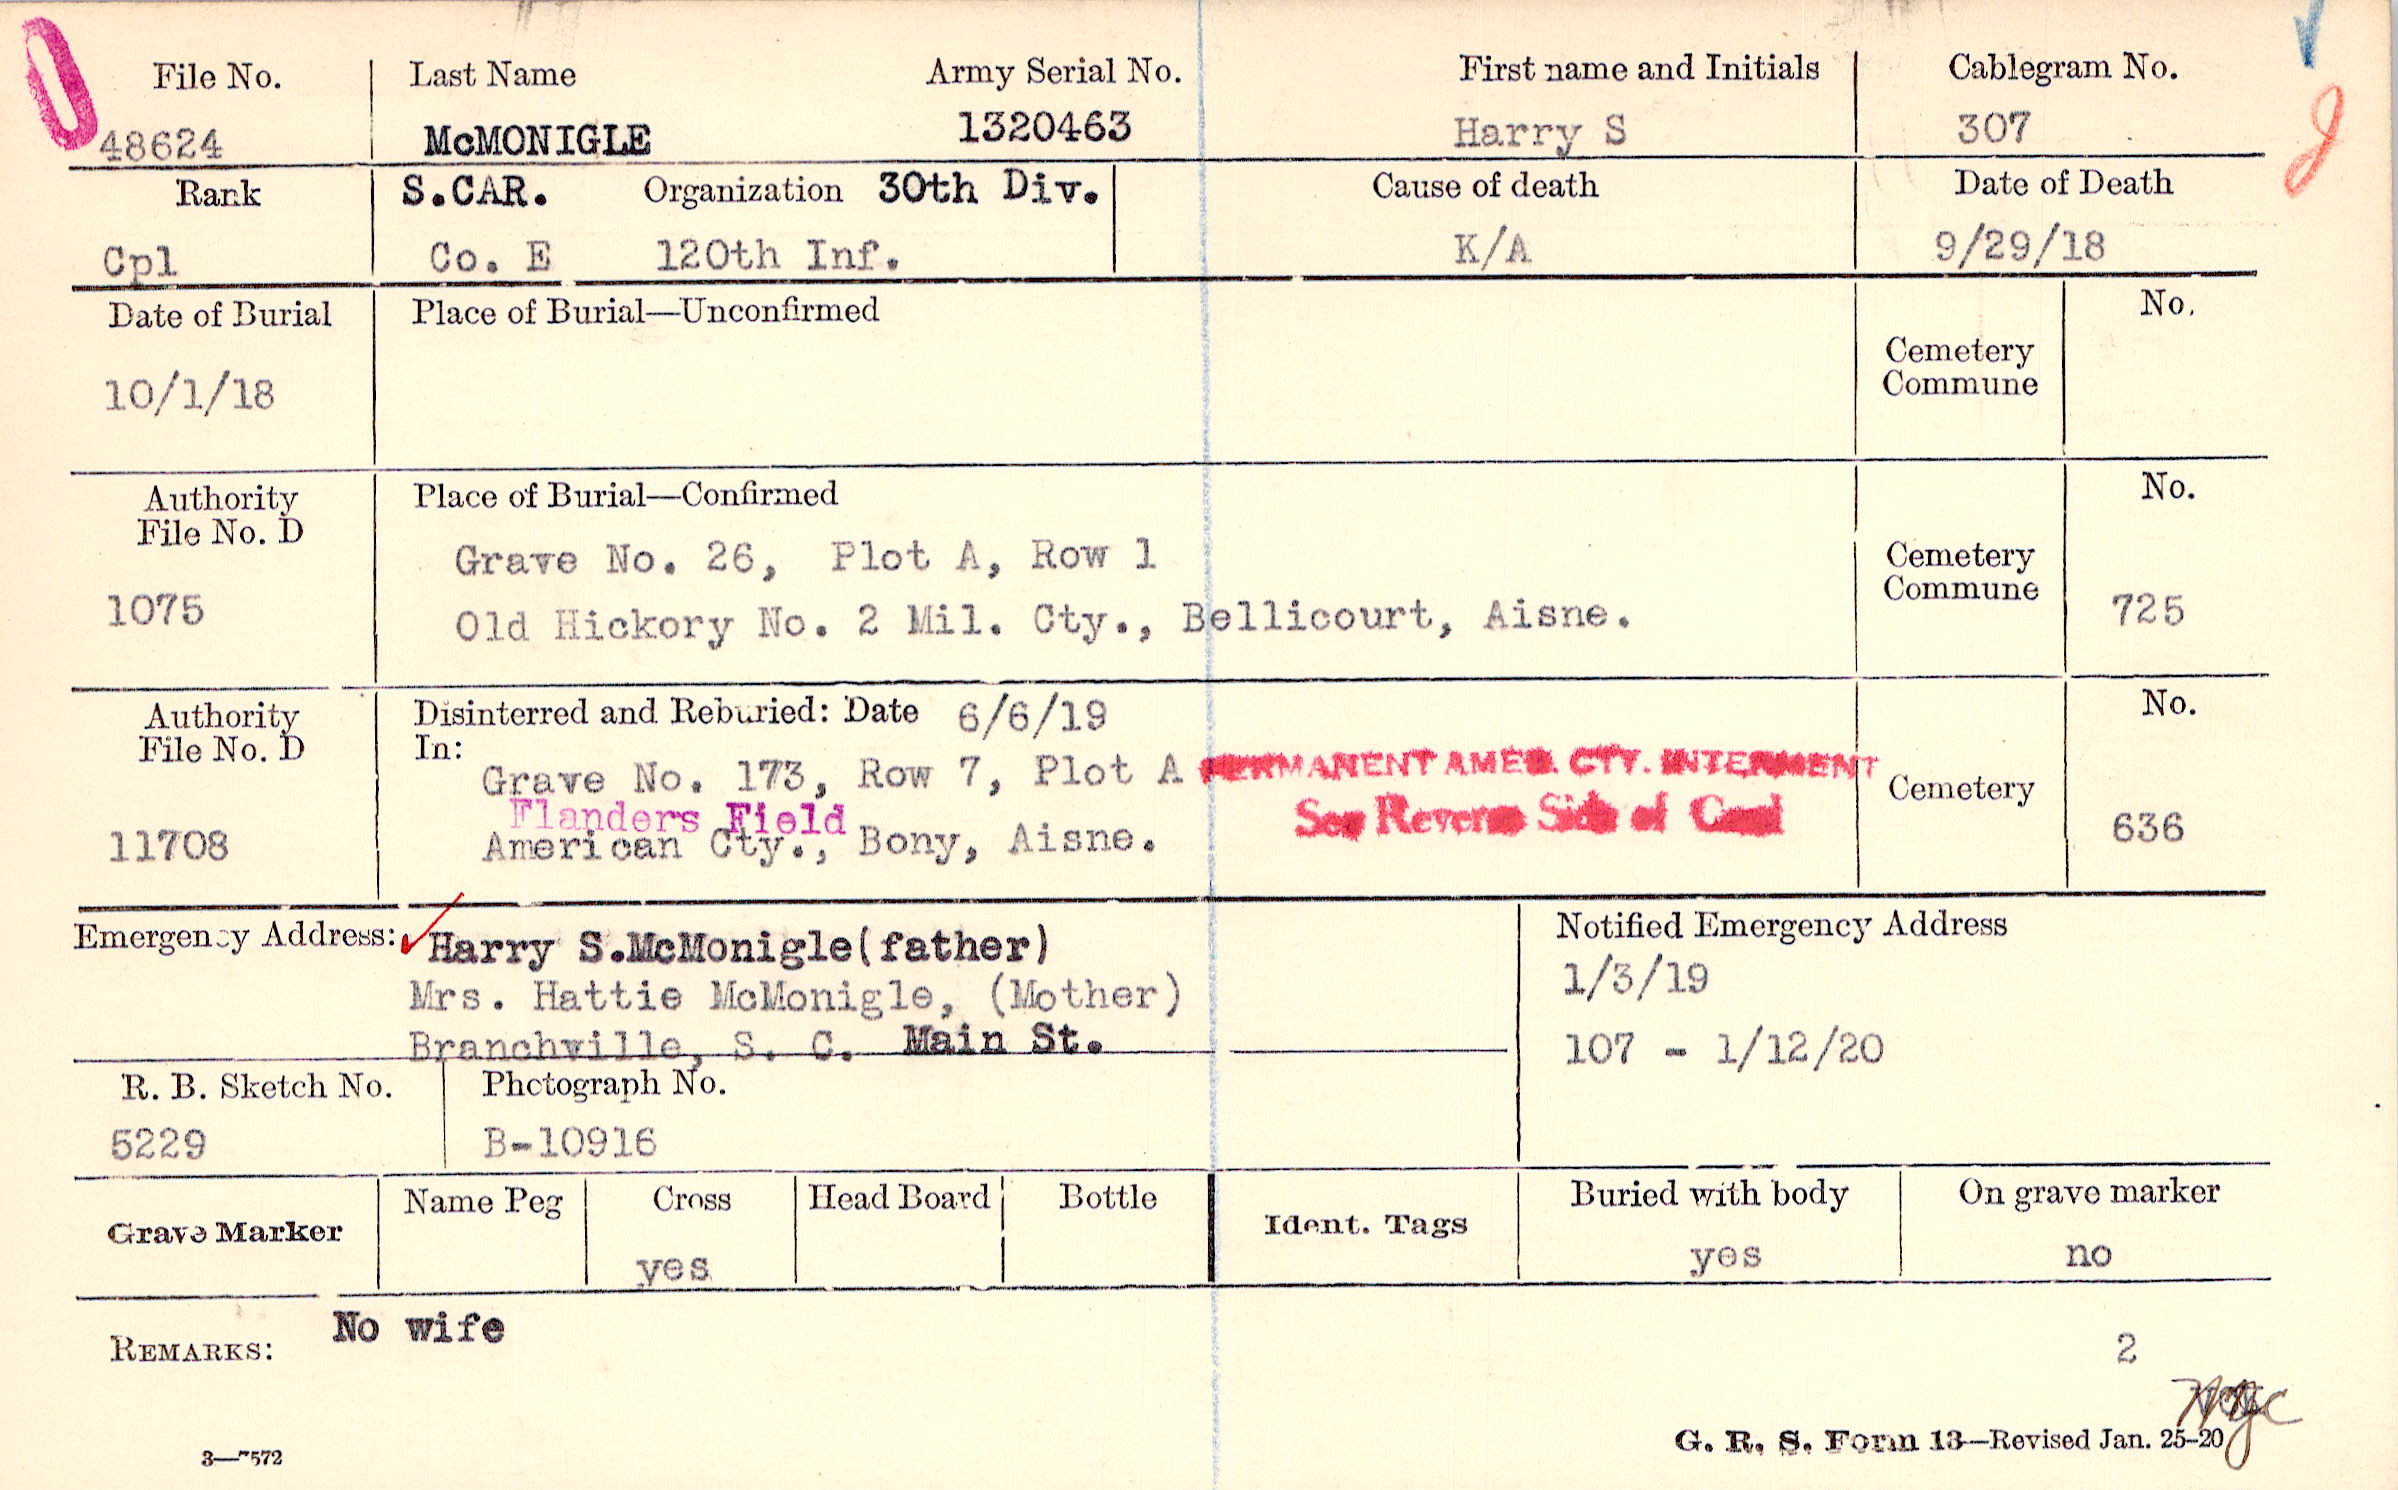 File No. Last Name Army Serial No. First name and Initials Cablegram No.
48624 McMONIGLE 1320463 Harry S 307
Rank S.CAR. Organization 30th Div. Cause of death Date of Death
Cpl Co. E 120th Inf. K/A 9/29/18
Date of Burial Place of Burial—Unconfirmed No.
Cemetery
Commune
10/1/18
Authority Place of Burial—Confirmed No.
File No. D
Grave No. 26, Plot A, Row 1 Cemetery
Commune
1075 Old Hickory No. 2 Mil. Cty., Bellicourt, Aisne. 725
Authority Disinterred and Reburied: Date 6/6/19 No.
File No. D In:
Grave No. 173, Row 7, Plot A PERMANENT AMER. CTY. INTERMENT
Flanders Field See Reverse Side of Card Cemetery
11708 American Cty., Bony, Aisne. 636
Emergency Address: Harry S.McMonigle(father) Notified Emergency Address
Mrs. Hattie McMonigle, (Mother) 1/3/19
Branchville, S. C. Main St. 107 - 1/12/20
R. B. Sketch No. Photograph No.
5229 B-10916
Grave Marker Name Peg Cross Head Board Bottle Ident. Tags Buried with body On grave marker
yes yes no
REMARKS: No wife
2
3—7572 G. R. S. Form 13—Revised Jan. 25-20